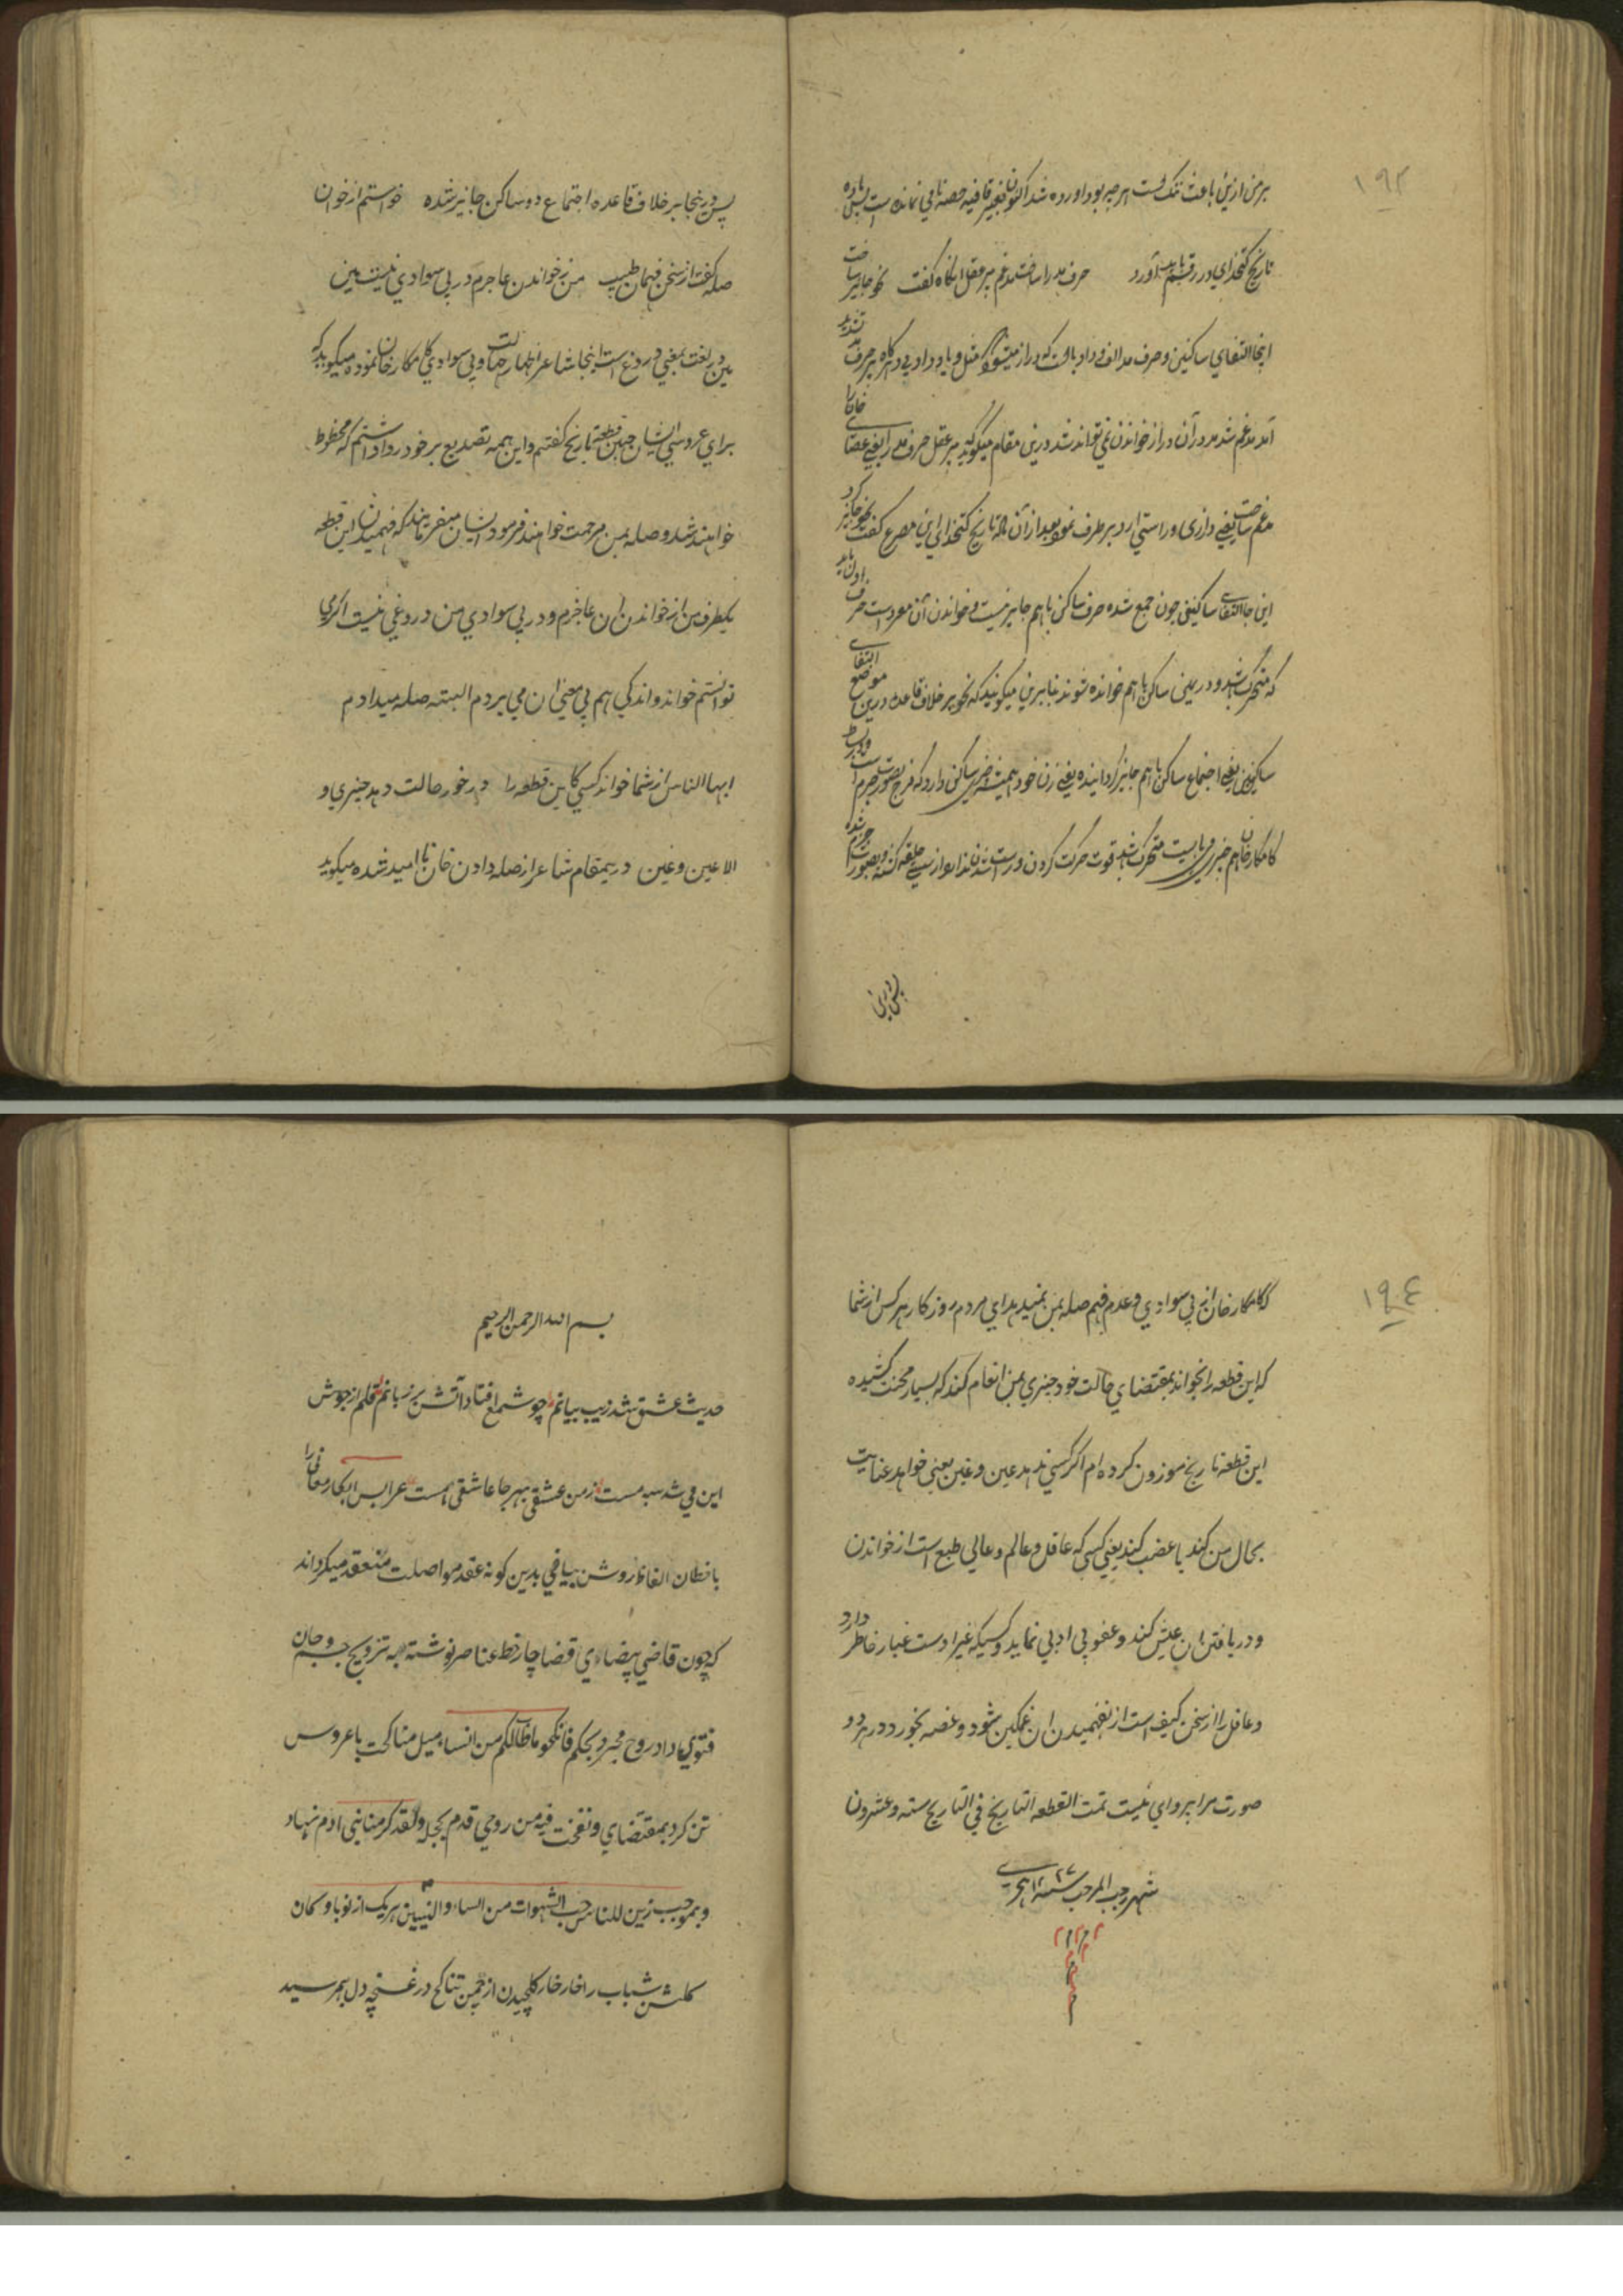 ١٩٣
بر من ازین باعث تنک است هر چه بود اورده شد اکنون بغیر قافیه حصه نامی نمانده است
تاریخ کتخدای در رقم باید آورد حرف مد را ساخت مدغم پیر عقل انکاه کفت نحو جایز ساخت
اینجا التقای ساکنین و حرف مد الف و واو یا است که دراز میشود مثل و یا و داودی و هرکاه بر حرف
آمد مدغم شد مد در آن دراز خواندن نمی تواند شد درین مقام میکوید که پیر عقل حرف مد را یعنی عصای خان را
مدغم ساخت یعنی درازی و راستی او را برطرف نمود بعد از آن ماده تاریخ کتخدای این مصرع کفت نحو جایز کرد
این جا التقای ساکنین چون جمع شده حرف ساکن باهم جایز نیست و خواندن آن معرد است حرف اول باید
که متحرک باشد و در یعنی ساکن باهم خوانده شوند بنابرین میکوید که نحو بر خلاف قاعده درین موضع التقای
ساکنین یعنی اجتماع ساکن باهم جایز کردانیده یعنی زن خود همیشه چیزی ساکن دارد که فرج بصورت جزم است
کامکار خان هم چیزی می بایست متحرک باشد قوت حرکت کردن و راست شدن ندارد از سستی حلقه کشته و بصورت جزم شده
پس درین
پس درینجا بر خلاف قاعده اجتماع دو ساکن جایز شده خواستم از خان
صله کفت از سخن فهمان طبیب من ز خواندن عاجزم در بی سوادی نیست مین
مین در لغت بمعنی دروغ است اینجا شاعر اظهار جهالت و بی سوادی کامکار خان نموده میکوید که
برای عروسی ایشان چنین قطعه تاریخ کفتم و این همه تصدیع بر خود روا داشتم که محظوظ
خواهند شد و صله بمن مرحمت خواهند فرمود ایشان میفرمایند که فهمیدن این قطعه
یکطرف من از خواندن ان عاجزم و در بی سوادی من دروغی نیست اکر می
توانستم خواند و اندکی هم پی بمعنی ان می بردم البته صله میدادم
ایها الناس از شما خواند کسی کاین قطعه را در خور حالت دهد چیزی و
الا عین و غین دریمقام شاعر از صله دادن خان ناامید شده میکوید
١٩٤
که کامکار خان از بی سوادی و عدم فهم صله بمن نمیدهد ای مردم روزکار هر کس از شما
که این قطعه را بخواند بمقتضای حالت خود چیزی بمن انعام کند که بسیار محنت کشیده
این قطعه تاریخ موزون کرده ام اکر کسی ندهد عین و غین یعنی خواهد عنایت
بحال من کند یا غضب کند یعنی کسی که عاقل و عالم و عالی طبع است از خواندن
و دریافتن ان عیش کند و عفو بی ادبی نماید و کسیکه غیر اوست غبار خاطر دارد
و غافل را از سخن کیف است از نفهمیدن ان غمکین شود و غصه بخورد در هر دو
صورت مرا پروای نیست تمت القطعه التاریخ فی التاریخ سته و عشرون
شهر رجب المرجب سنه ٢٧ هجری
بسم الله الرحمن الرحیم
حدیث عشق شد زیب بیانم چو شمع افتاد آتش بر زبانم قلم از جوش
این می شد سیه مست ز من عشقی بهر جا عاشقی هست عرایس ابکار معانی را
با خطان الفاظ روشن بیاضی بدین کونه عقد مواصلت منعقد میکرداند
که چون قاضی بیضاوی قضا چار خط عناصر نوشته به تزویج جسم و جان
فتوی داد روح مجرد بحکم فانکحوا ما طاب لکم من النساء میل مناکحت با عروس
تن کرد بمقتضای و نفخت فیه من روحی قدم بحجله و لقد کرمنا بنی ادم نهاد
و بموجب زین للناس حب الشهوات من النساء و البنین هر یک از نوباوکان
کلشن شباب را خار خار کلچیدن از چمن تناکح در غنچه دل بهم رسید